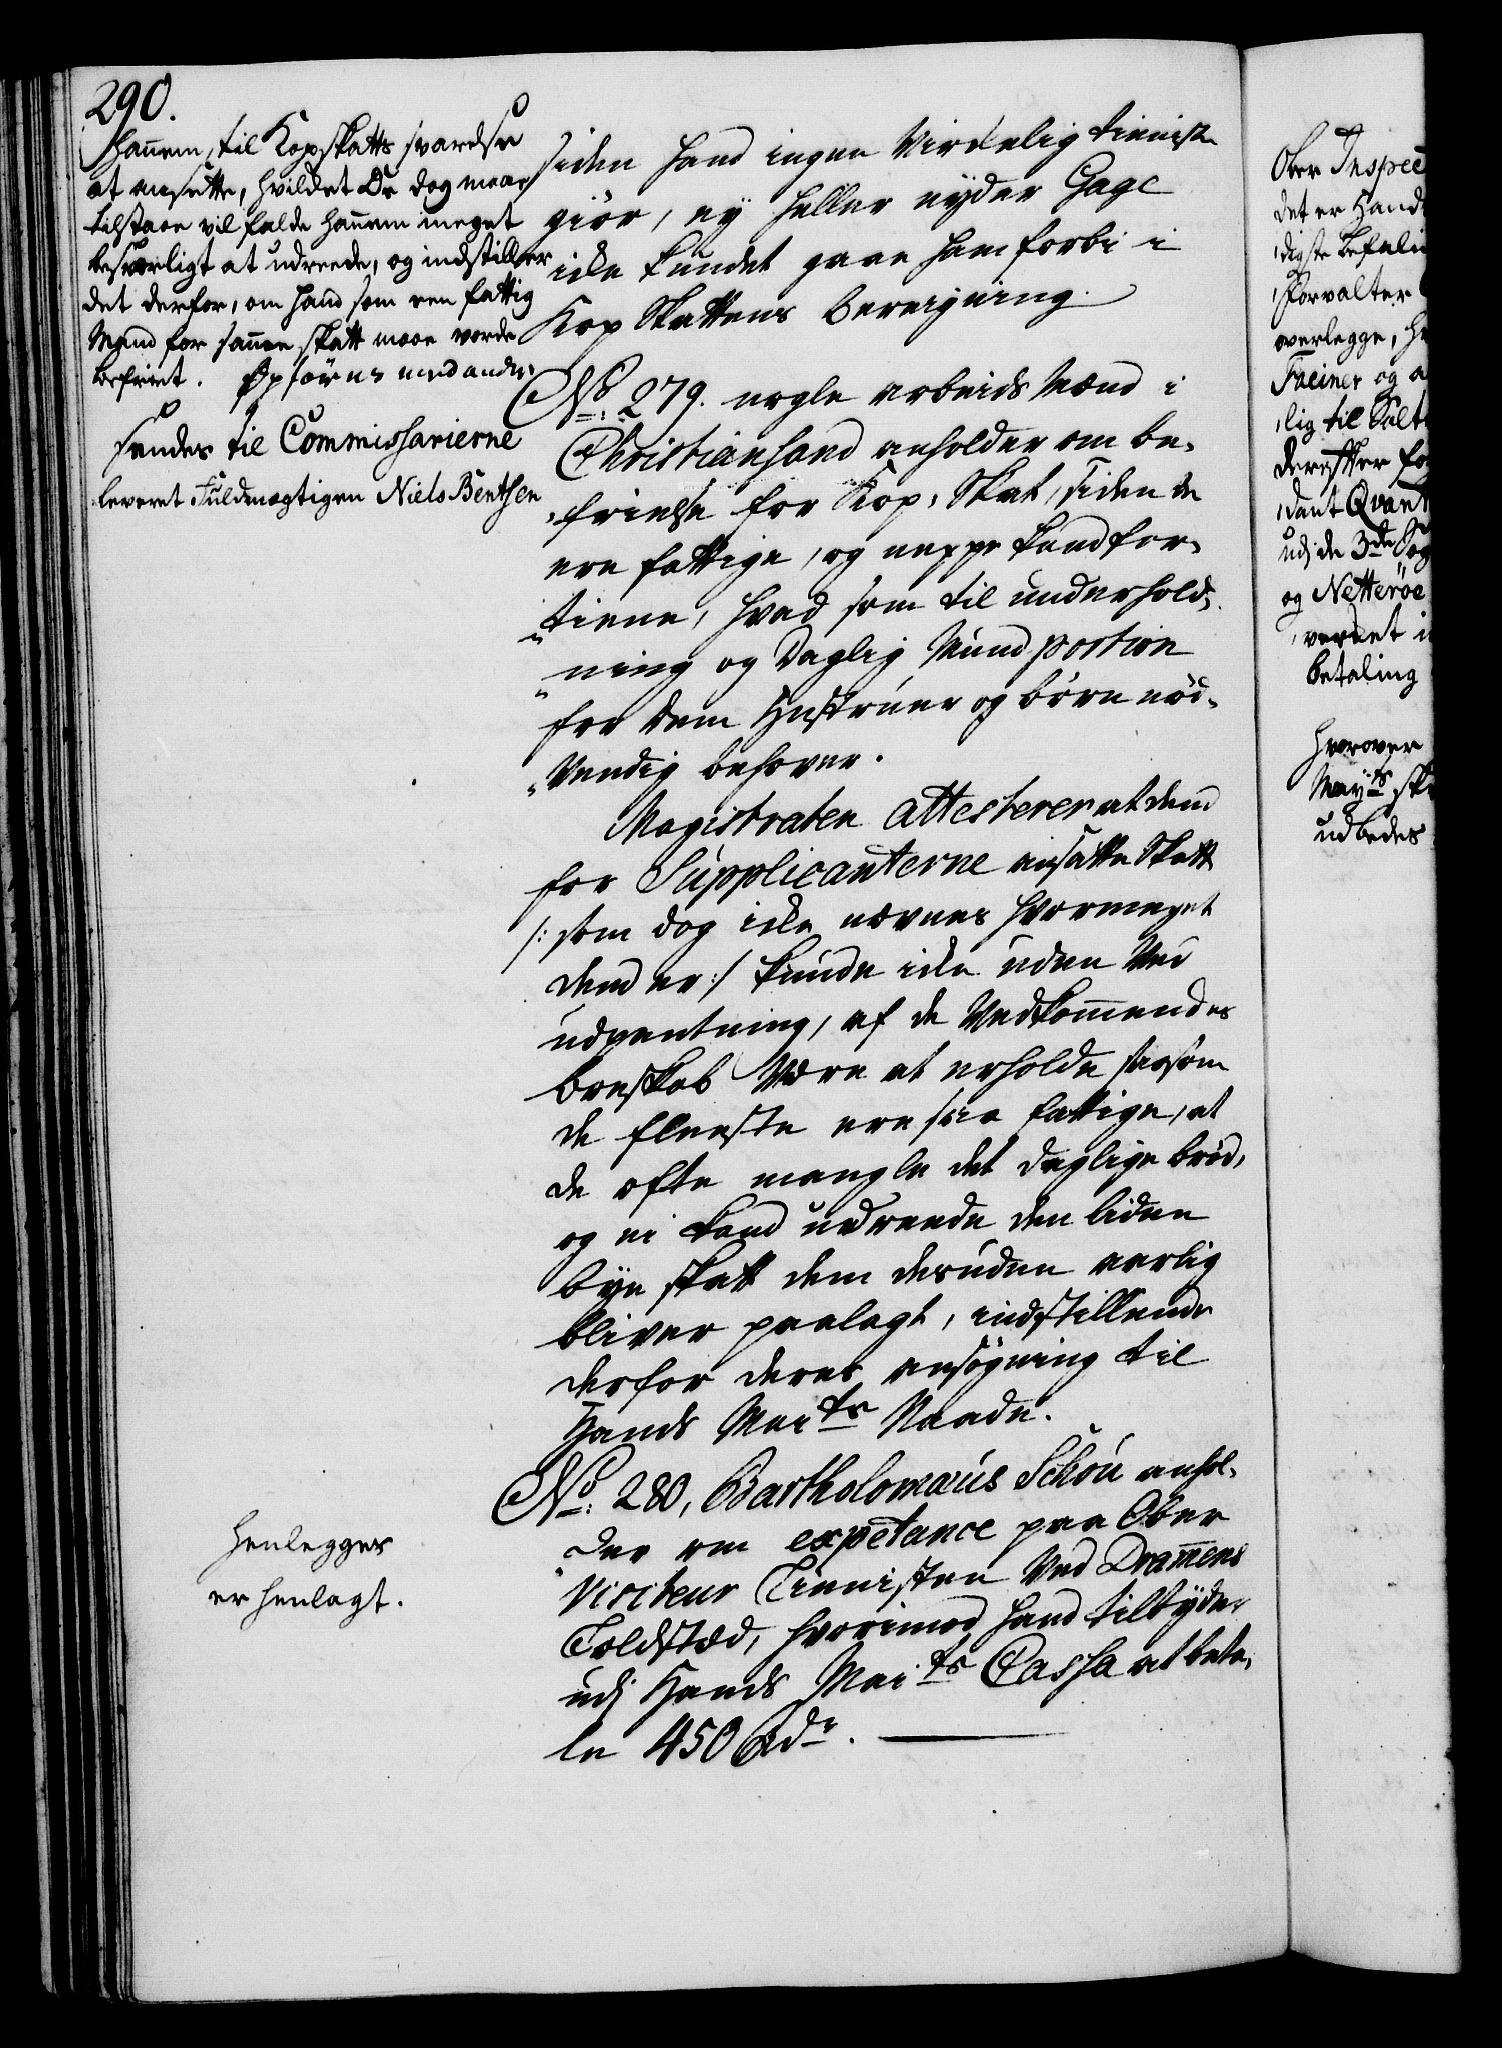 290.
hañem, til Kopskatts svarelse
at ansette, hvilcket De dog maae
tilstaae vil falde hañem meget
besværligt at udreede, og indstiller
det derfor, om hand som een fattig
Mand for samme skatt maae vorde
befriet. Opføres med andre
sendes til Commissarierne
leveret Fuldmægtigen Niels Benthsen
siden hand ingen Virckelig tieniste
giør, ey heller nyder Gage
icke kundet gaae ham forbi i
Kop Skattens bereigning.
No: 279. nogle arbeids Mænd i
Christiansand anholder om be-
frielse for Kop-Skat, siden de
ere fattige, og neppe kand for-
tiene, hvad som til underhold-
ning og Daglig Mund portion
for dem Hustruer og børn nød-
Vendig behover.
Magistraten attesterer at dend
for Supplicanterne ansatte Skatt
/: som dog icke nævnes hvormeget
dend er :/ kunde icke uden Ved
udpantning, af de Vedkom̃endes
boeskab Være at erholde saasom
de fleeste ere saa fattige, at
de ofte mangle det daglige brød,
og ei kand udreede den liden
bye skatt dem desuden aarlig
bliver paalagt, indstillende
derfor deres ansøgning til
Hands Maits Naade.
No: 280, Bartholomæus Schou anhol-
der om expetance paa Ober
Visiteur Tienisten Ved Dram̃ens
Toldsted, hvorimod hand tilbyder
udj Hands Maits Cassa at beta-
le 450 Rdr.
Henlegges
er henlagt.
Ober Inspect
det er Hand
digste befali
forvalter
overlegge, h
Faciner og a
lig til Salt
derefter fo
dant Qvant
udi de 3de Sog
og Netterøe
verket i
betaling
Hvorover
Mayts sk
udbedes